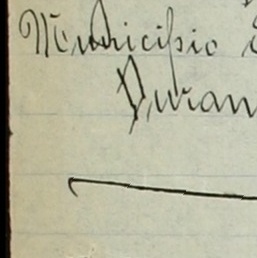 Municipio
Duran